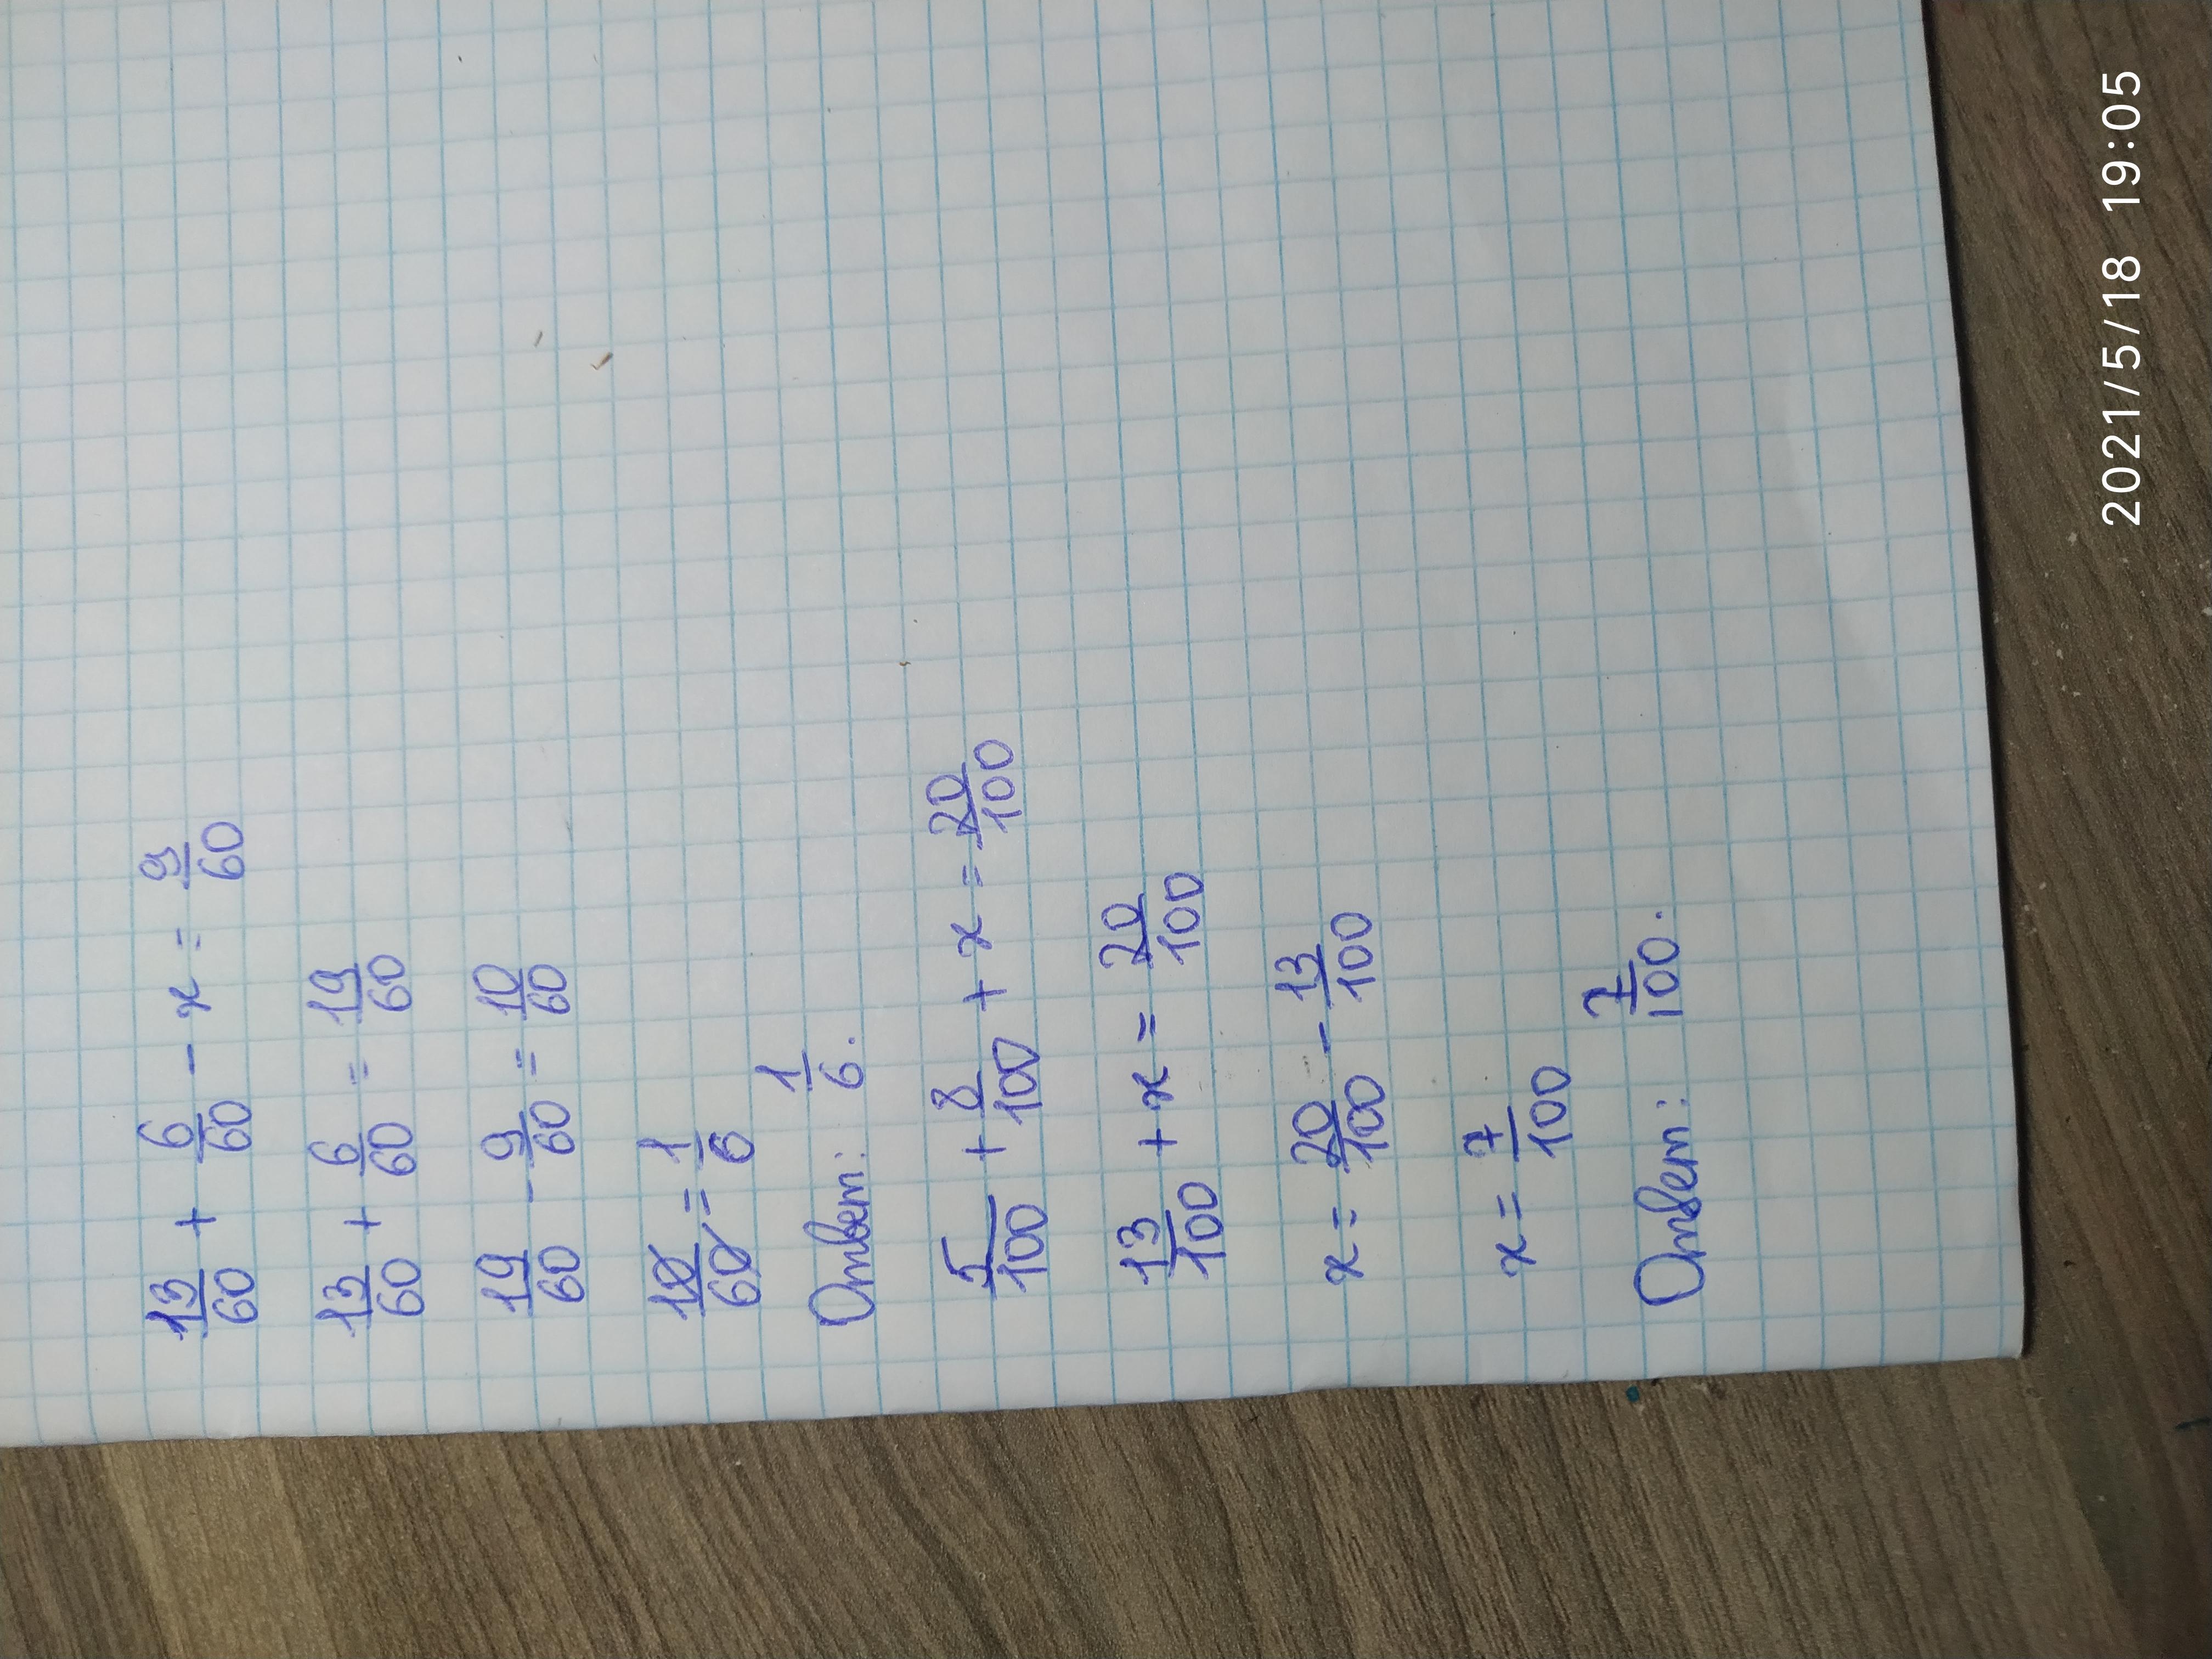 13/60 + 6/60 - x = 9/60
13/60 + 6/60 = 19/60
19/60 - 9/60 = 10/60
10/60 = 1/6
Ответ: 1/6.
5/100 + 8/100 + x = 20/100
13/100 + x = 20/100
x = 20/100 - 13/100
x = 7/100
Ответ: 7/100.
2021/5/18 19:05